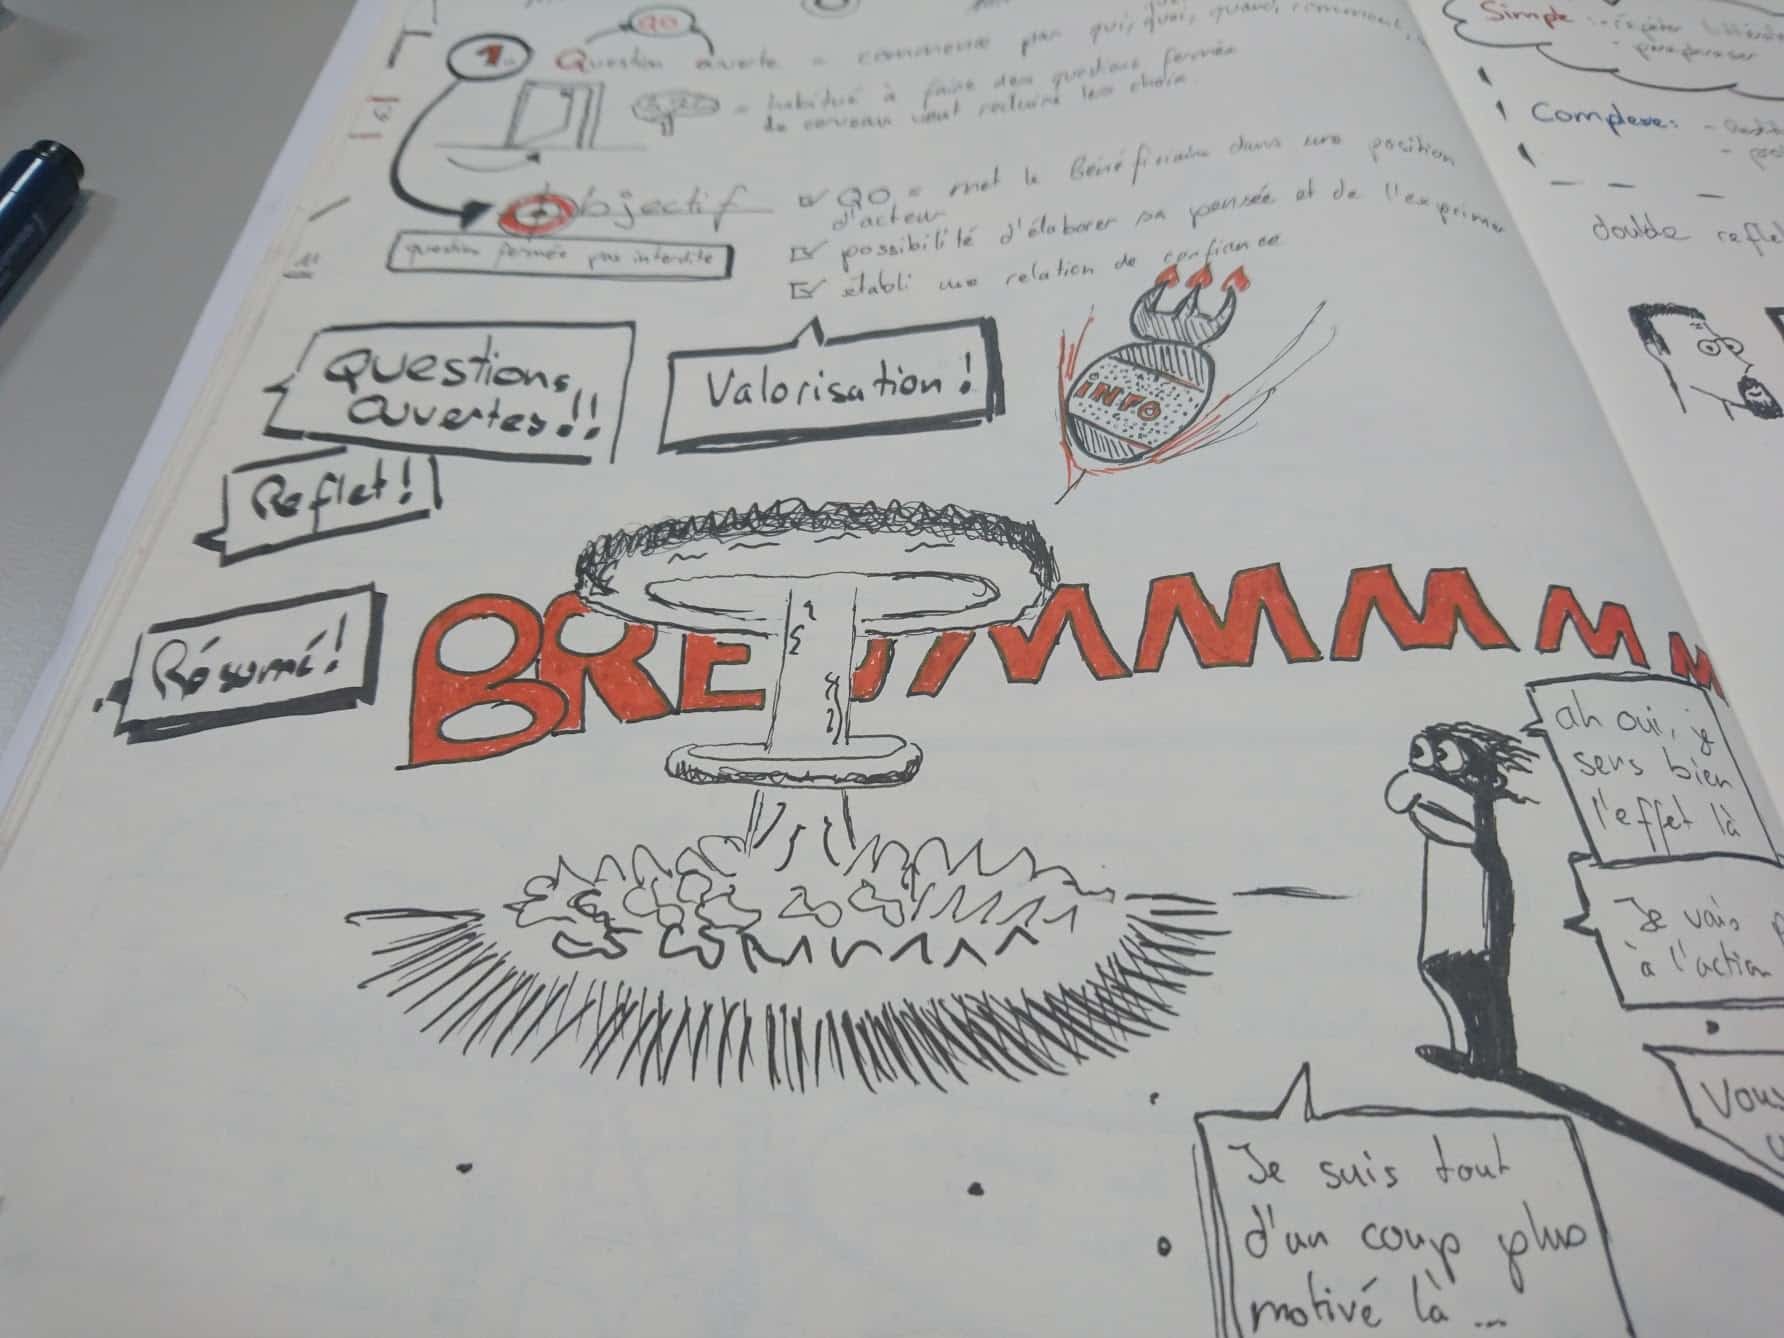 QO
1. Question ouverte = commence par qui, quoi, quand, comment,
= habitué à faire des questions fermée
le cerveau veut reduire les choix.
Objectif
question fermée pas interdite
QO = met le Bénéficiaire dans une position
d'acteur
possibilité d'élaborer sa pensée et de l'exprimer
établi une relation de confiance
Questions
ouvertes!!
Valorisation!
INFO
Reflet!
Résumé!
ah oui, je
sens bien
l'effet là
Je vais
à l'action
Vous
Je suis tout
d'un coup plus
motivé là ...
Simple
paraphraser
Complexe:
double reflet